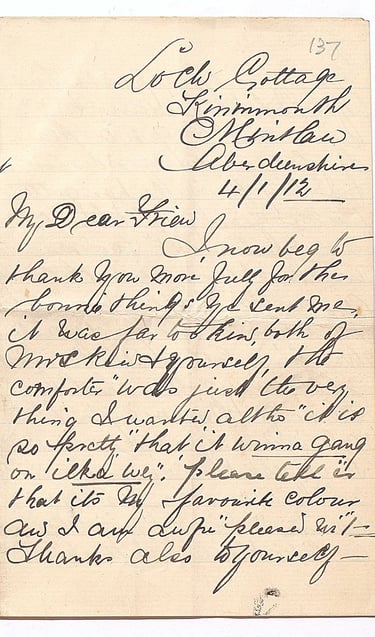 137
Loch Cottage
Kininmonth
Mintlaw
Aberdeenshire
4/1/12
My Dear Frien
I now beg to
thank you more full for the
bonnie things ye sent me,
it was far to kin, both of
Mrs Skea & yourself, the
"comforter" was just the very
thing I wanted altho "it is
so pretty" that it winna gang
on "ilka wey". please tell er
that its my favourite colour
and I am awfu' pleased wi't—
Thanks also to yourself—